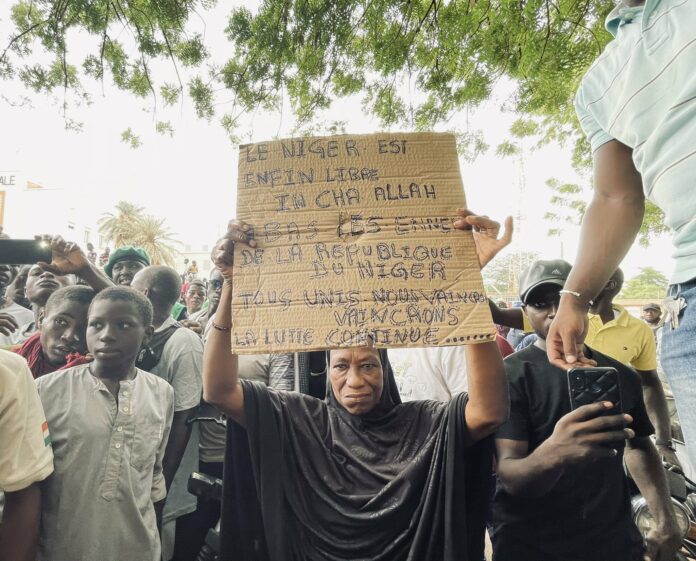 ALE
LE NIGER EST
ENFIN LIBRE
IN CHA ALLAH
BAS LES ENNE
DE LA REPUBLIQUE
DU NIGER
TOUS UNIS NOUS VAINCRONS
VAINCRONS
LA LUTTE CONTINUE .....